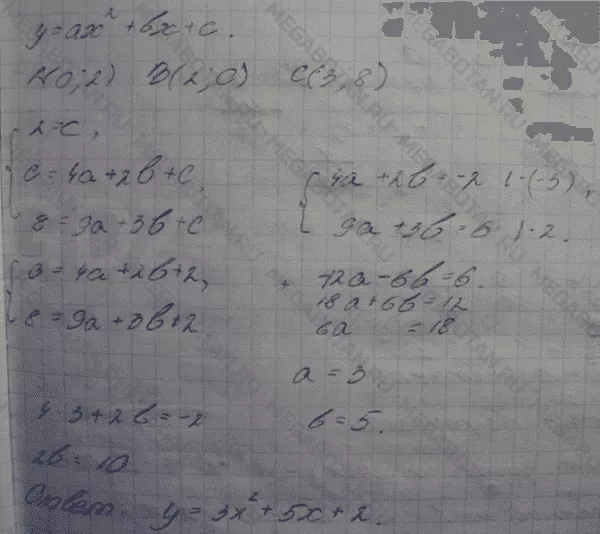 y = ax² + bx + c.
A(0; 2) B(2; 0) C(3, 8)
2 = c,
0 = 4a + 2b + c,
8 = 9a + 3b + c
4a + 2b = -2 | ·(-3),
9a + 3b = 6 | · 2.
0 = 4a + 2b + 2,
8 = 9a + 3b + 2.
-12a - 6b = 6.
18a + 6b = 12
6a = 18
a = 3
4 · 3 + 2b = -2
b = 5.
2b = 10
Ответ. y = 3x² + 5x + 2.
MEGABOTAN.RU